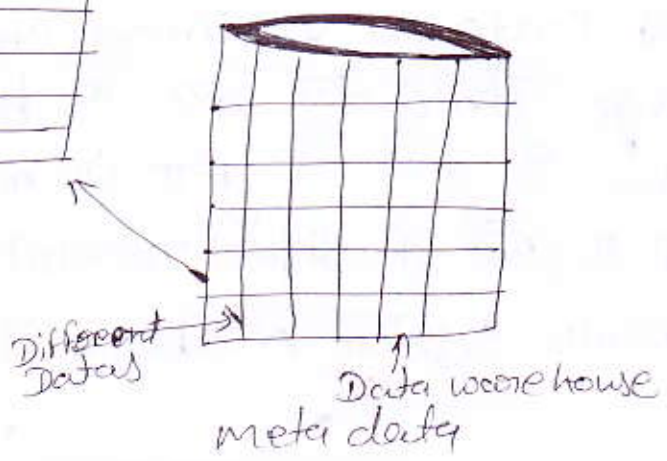 Different
Datas
Data warehouse
meta data